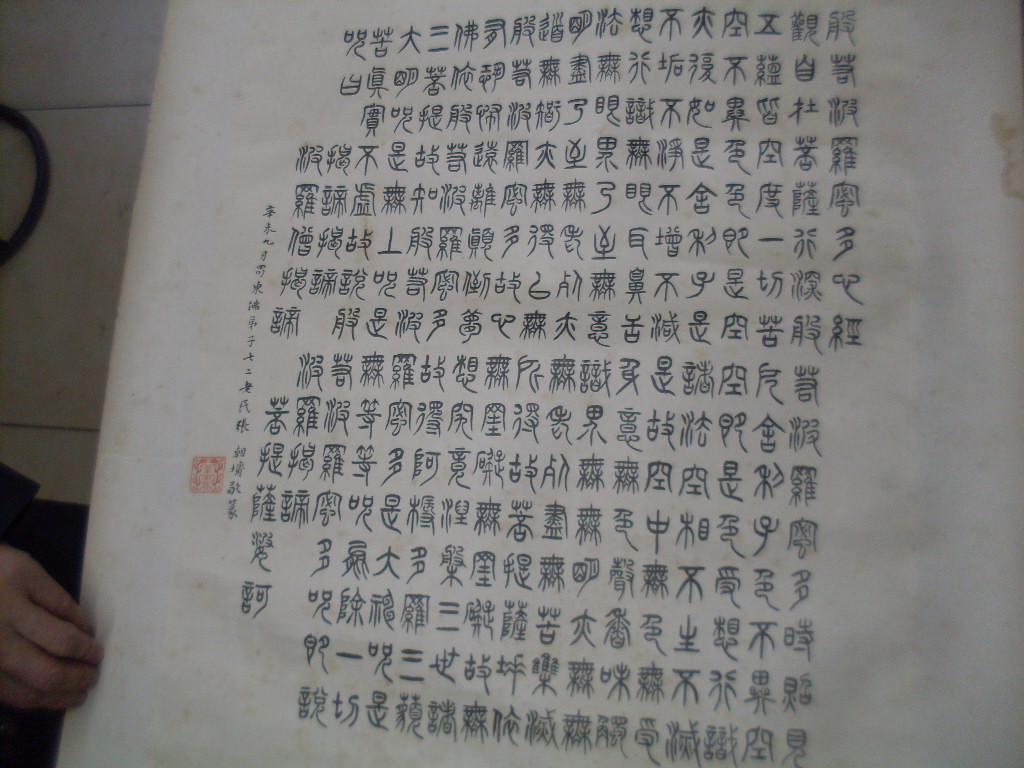 般若波羅蜜多心經
觀自在菩薩行深般若波羅蜜多時照見
五蘊皆空度一切苦厄舍利子色不異空
空不異色色即是空空即是色受想行識
亦復如是舍利子是諸法空相不生不滅
不垢不淨不增不減是故空中無色無受
想行識無眼耳鼻舌身意無色聲香味觸
法無眼界乃至無意識界無無明亦無無
明盡乃至無老死亦無老死盡無苦集滅
道無智亦無得以無所得故菩提薩埵依
般若波羅蜜多故心無罣礙無罣礙故無
有恐怖遠離顛倒夢想究竟涅槃三世諸
佛依般若波羅蜜多故得阿耨多羅三藐
三菩提故知般若波羅蜜多是大神咒是
大明咒是無上咒是無等等咒能除一切
苦真實不虛故說般若波羅蜜多咒即說
咒曰 揭諦揭諦 波羅揭諦
波羅僧揭諦 菩提薩婆訶
辛未九月蜀東弟子七二老民張朝墉敬篆